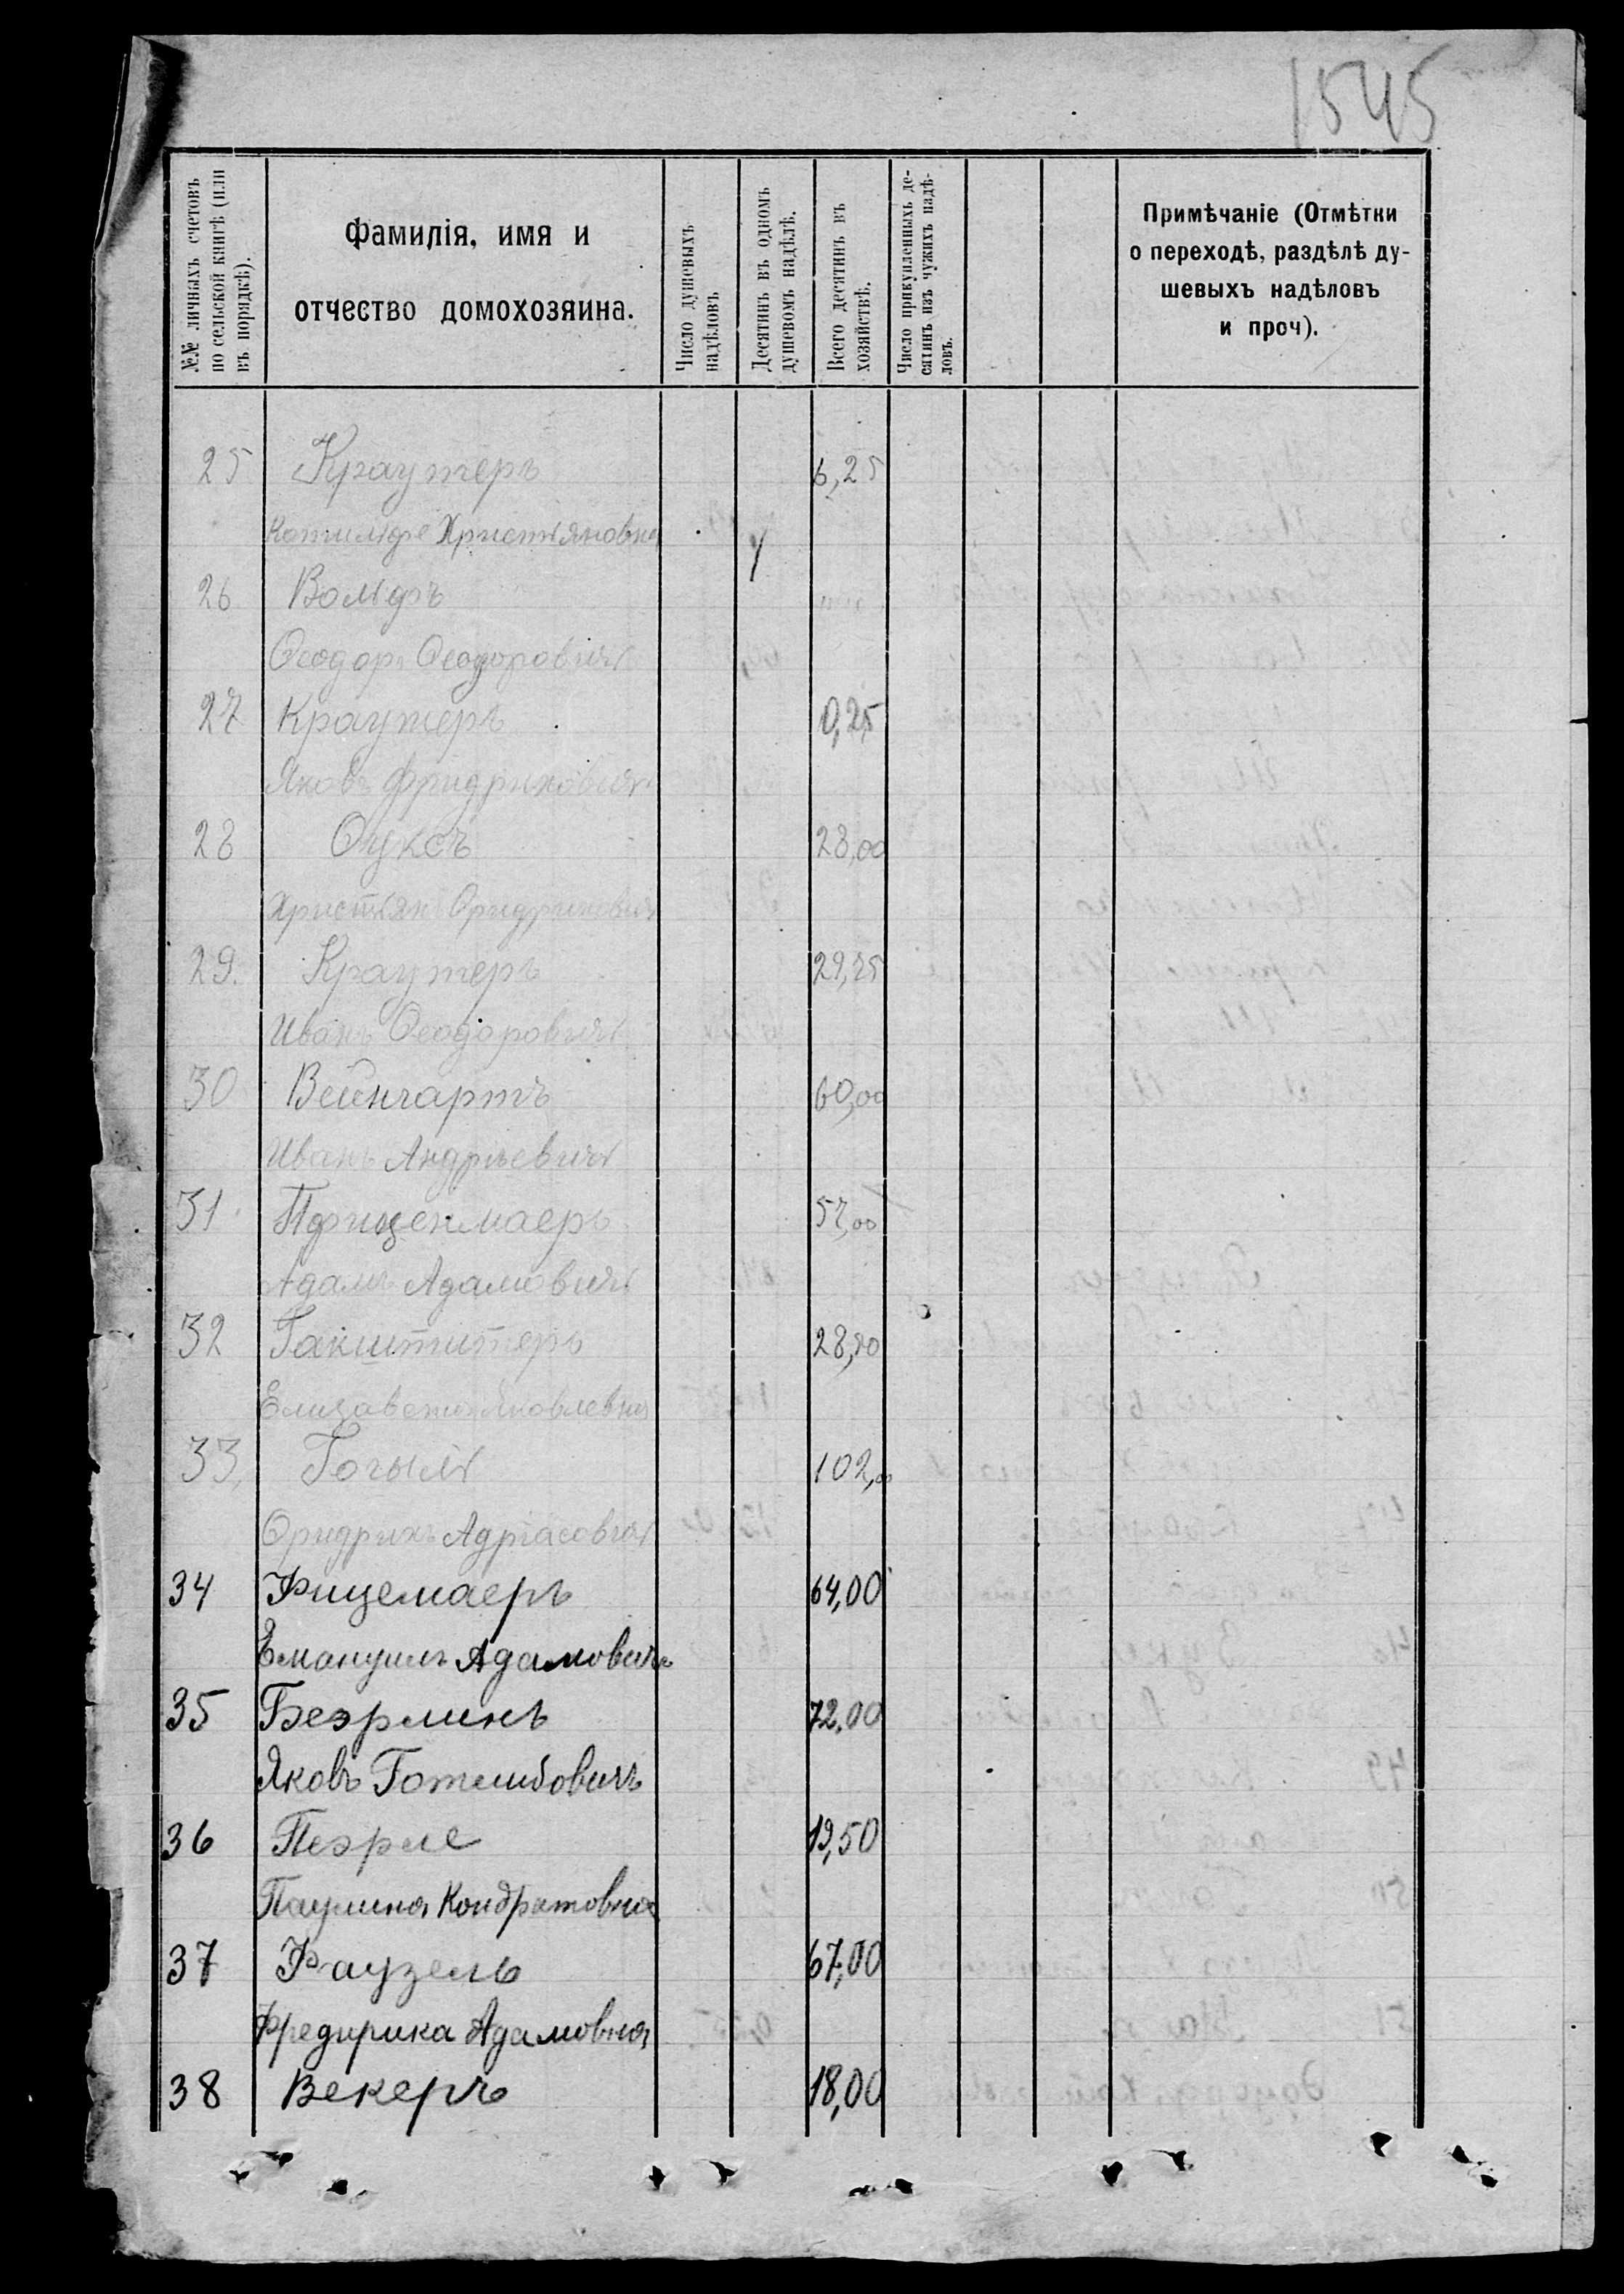 1545
№№ личныхъ счетовъ
по сельской книгѣ (или
въ порядкѣ).
Фамилія, имя и
отчество домохозяина.
Число душевыхъ
надѣловъ
Десятинъ въ одномъ
душевомъ надѣлѣ.
Всего десятинъ въ
хозяйствѣ.
Число прикупленныхъ де-
сятинъ изъ чужихъ надѣ-
ловъ.
Примѣчаніе (Отмѣтки
о переходѣ, раздѣлѣ ду-
шевыхъ надѣловъ
и проч).
25 Краутеръ 6,25
Христіяновна
26 Вольфъ
Ѳеодоръ Ѳеодоровичъ
27 Краутеръ 0,25
Яковъ Фридриховичъ
28 Ѳуксъ 28,00
Христіянъ Ѳридриховичъ
29. Краутеръ 29,25
Иванъ Ѳеодоровичъ
30 Вейнгартъ 60,00
Иванъ Андріевичъ
31 Пфиценмаеръ 57,00
Адамъ Адамовичъ
32 Гакштитеръ 28,20
Елизавета Яковлевна
33, 102,00
Ѳридрихъ
34 Фицемаеръ 64,00
Емануилъ Адамовичъ
35 Беэрлинъ 72,00
Яковъ Готлибовичъ
36 Пеэрле 19,50
Паулина Кондратовна
37 Фаузель 67,00
Фредирика Адамовна
38 Векеръ 18,00